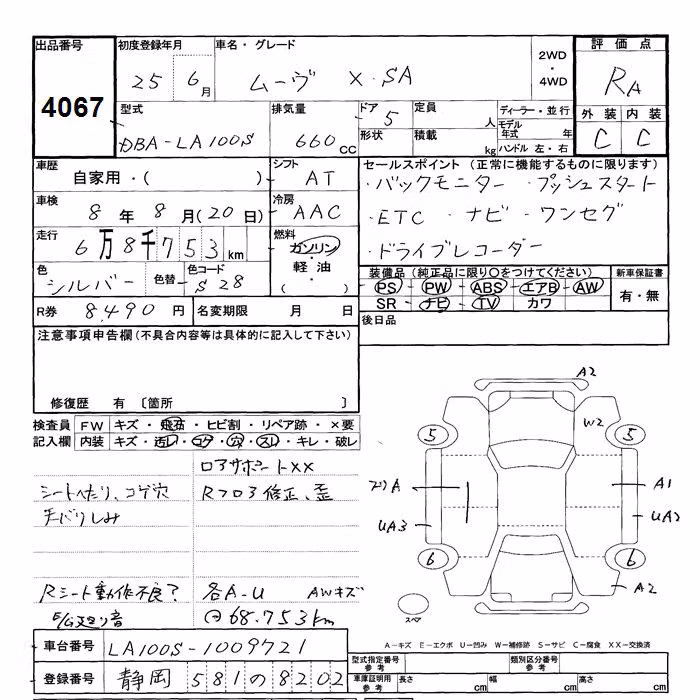 出品番号 4067
初度登録年月 25 6月
車名・グレード ムーヴ X SA
2WD・4WD
評価点 RA
外装 C 内装 C
型式 DBA-LA100S
排気量 660cc
ドア 5
形状
定員 人
積載 kg
ディーラー・並行
モデル年式 年
ハンドル 左・右
車歴 自家用・( )
シフト AT
車検 8年8月(20日)
冷房 AAC
走行 6万8千753km
燃料 ガソリン・軽油・( )
色 シルバー 色替 色コード S28
R券 8,490円 名変期限 月 日
セールスポイント (正常に機能するものに限ります)
・バックモニター ・プッシュスタート
・ETC ・ナビ ・ワンセグ
・ドライブレコーダー
装備品 (純正品に限り○をつけてください) 新車保証書
PS・PW・ABS・エアB・AW 有・無
SR・ナビ・TV・カワ
後日品
注意事項申告欄 (不具合内容等は具体的に記入して下さい)
修復歴 有 〔箇所 〕
検査員 FW キズ・飛石・ヒビ割・リペア跡・×要
記入欄 内装 キズ・汚レ・コゲ・穴・スレ・キレ・破レ
コアサポートXX
シートヘたり、コゲ穴 Rフロア修正、歪
天バリしみ
Rシート動作不良? 各A-U AWキズ
E/G廻り音 68.753km
A2
W2
5 5
A A1
UA3 UA2
6 6
A2
スペア
A-キズ E-エクボ U-凹み W-補修跡 S-サビ C-腐食 XX-交換済
車台番号 LA100S-1009721
登録番号 静岡 581の8202
型式指定番号 参考 類別区分番号 参考
車庫証明用 参考 長さ cm 幅 cm 高さ cm